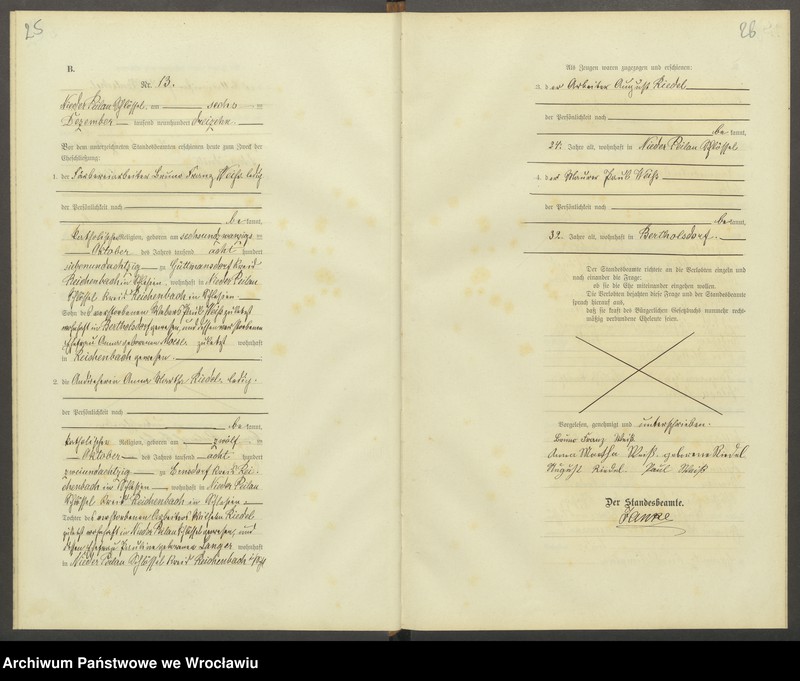 25
B.
Nr. 13.
Nieder Peilau Schlössel, am sechs ten
Dezember tausend neunhundert dreizehn
Vor dem unterzeichneten Standesbeamten erschienen heute zum Zweck der
Eheschließung:
1. der Färbereiarbeiter Bruno Franz Weiß, ledig
der Persönlichkeit nach
be kannt,
katholischer Religion, geboren am sechsundzwanzigs ten
Oktober des Jahres tausend acht hundert
siebenundachtzig zu Güttmansdorf Kreis
Reichenbach in Schlesien, wohnhaft in Nieder Peilau
Schlössel Kreis Reichenbach in Schlesien
Sohn des verstorbenen Paul Weiß zuletzt
wohnhaft in Bertholsdorf gewesen, und dessen verstorbenen
Ehefrau Anna geborenen zuletzt wohnhaft
in Reichenbach gewesen.
2. die Anna Martha Riedel, ledig.
der Persönlichkeit nach
be kannt,
katholischer Religion, geboren am zwölf ten
Oktober des Jahres tausend acht hundert
zweiundachtzig zu Ernsdorf Kreis Rei-
chenbach in Schlesien, wohnhaft in Nieder Peilau
Schlössel Kreis Reichenbach in Schlesien
Tochter des verstorbenen Arbeiters Wilhelm Riedel
zuletzt wohnhaft in Nieder Peilau Schlössel gewesen, und
dessen Ehefrau Pauline geborenen Langer wohnhaft
in Nieder Peilau Schlössel Kreis Reichenbach
26
Als Zeugen waren zugezogen und erschienen:
3. der Arbeiter August Riedel
der Persönlichkeit nach
be kannt,
24 Jahre alt, wohnhaft in Nieder Peilau Schlössel
4. der Maurer Paul Weiß
der Persönlichkeit nach
be kannt,
32 Jahre alt, wohnhaft in Bertholsdorf.
Der Standesbeamte richtete an die Verlobten einzeln und
nach einander die Frage:
ob sie die Ehe miteinander eingehen wollen.
Die Verlobten bejahten diese Frage und der Standesbeamte
sprach hierauf aus,
daß sie kraft des Bürgerlichen Gesetzbuchs nunmehr recht-
mäßig verbundene Eheleute seien.
Vorgelesen, genehmigt und unterschrieben.
Bruno Franz Weiß
Anna Martha Weiß geborene Riedel
August Riedel Paul Weiß
Der Standesbeamte.
Archiwum Państwowe we Wrocławiu